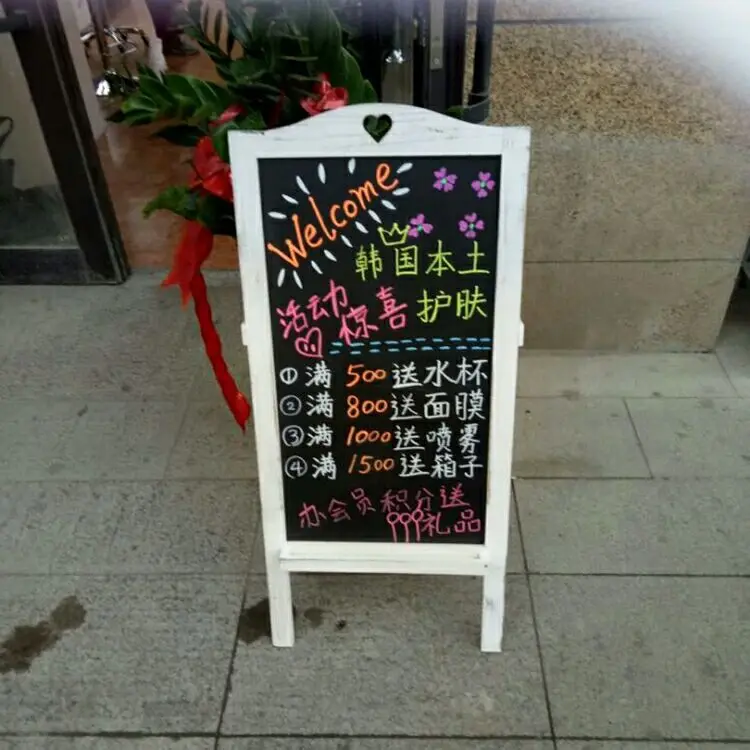 Welcome
韩国本土
护肤
活动
惊喜
①满500送水杯
②满800送面膜
③满1000送喷雾
④满1500送箱子
办会员积分送
礼品